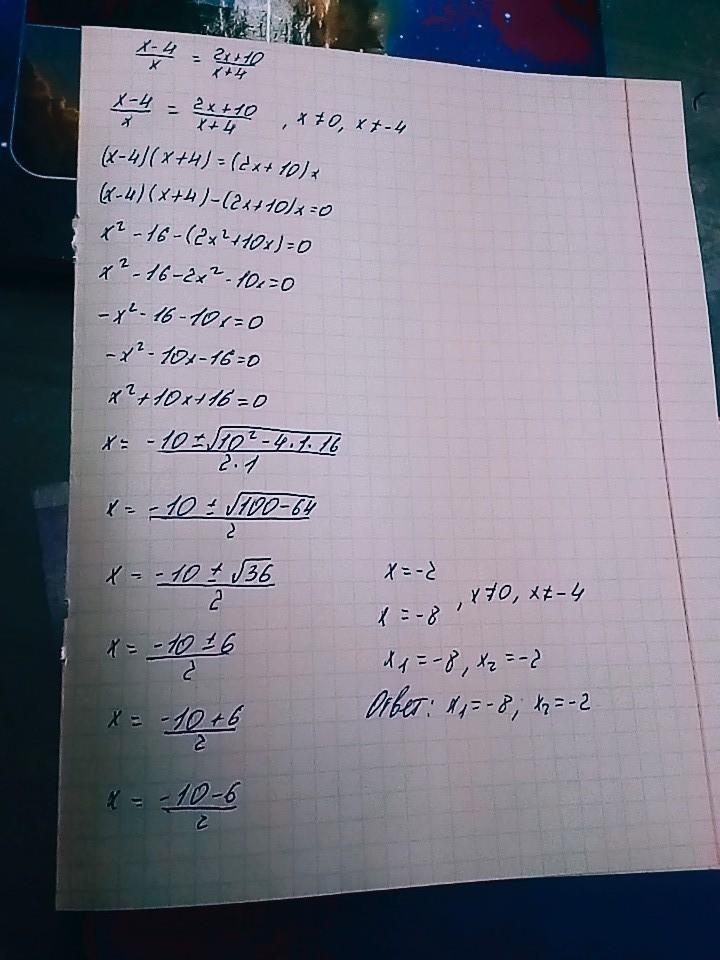 (x-4)/x = (2x+10)/(x+4)
(x-4)/x = (2x+10)/(x+4) , x≠0, x≠-4
(x-4)(x+4)=(2x+10)x
(x-4)(x+4)-(2x+10)x=0
x²-16-(2x²+10x)=0
x²-16-2x²-10x=0
-x²-16-10x=0
-x²-10x-16=0
x²+10x+16=0
x= (-10±√(10²-4·1·16))/(2·1)
x= (-10±√(100-64))/2
x= (-10±√36)/2
x= (-10±6)/2
x= (-10+6)/2
x= (-10-6)/2
x=-2
x=-8 , x≠0, x≠-4
x₁=-8, x₂=-2
Ответ: x₁=-8; x₂=-2